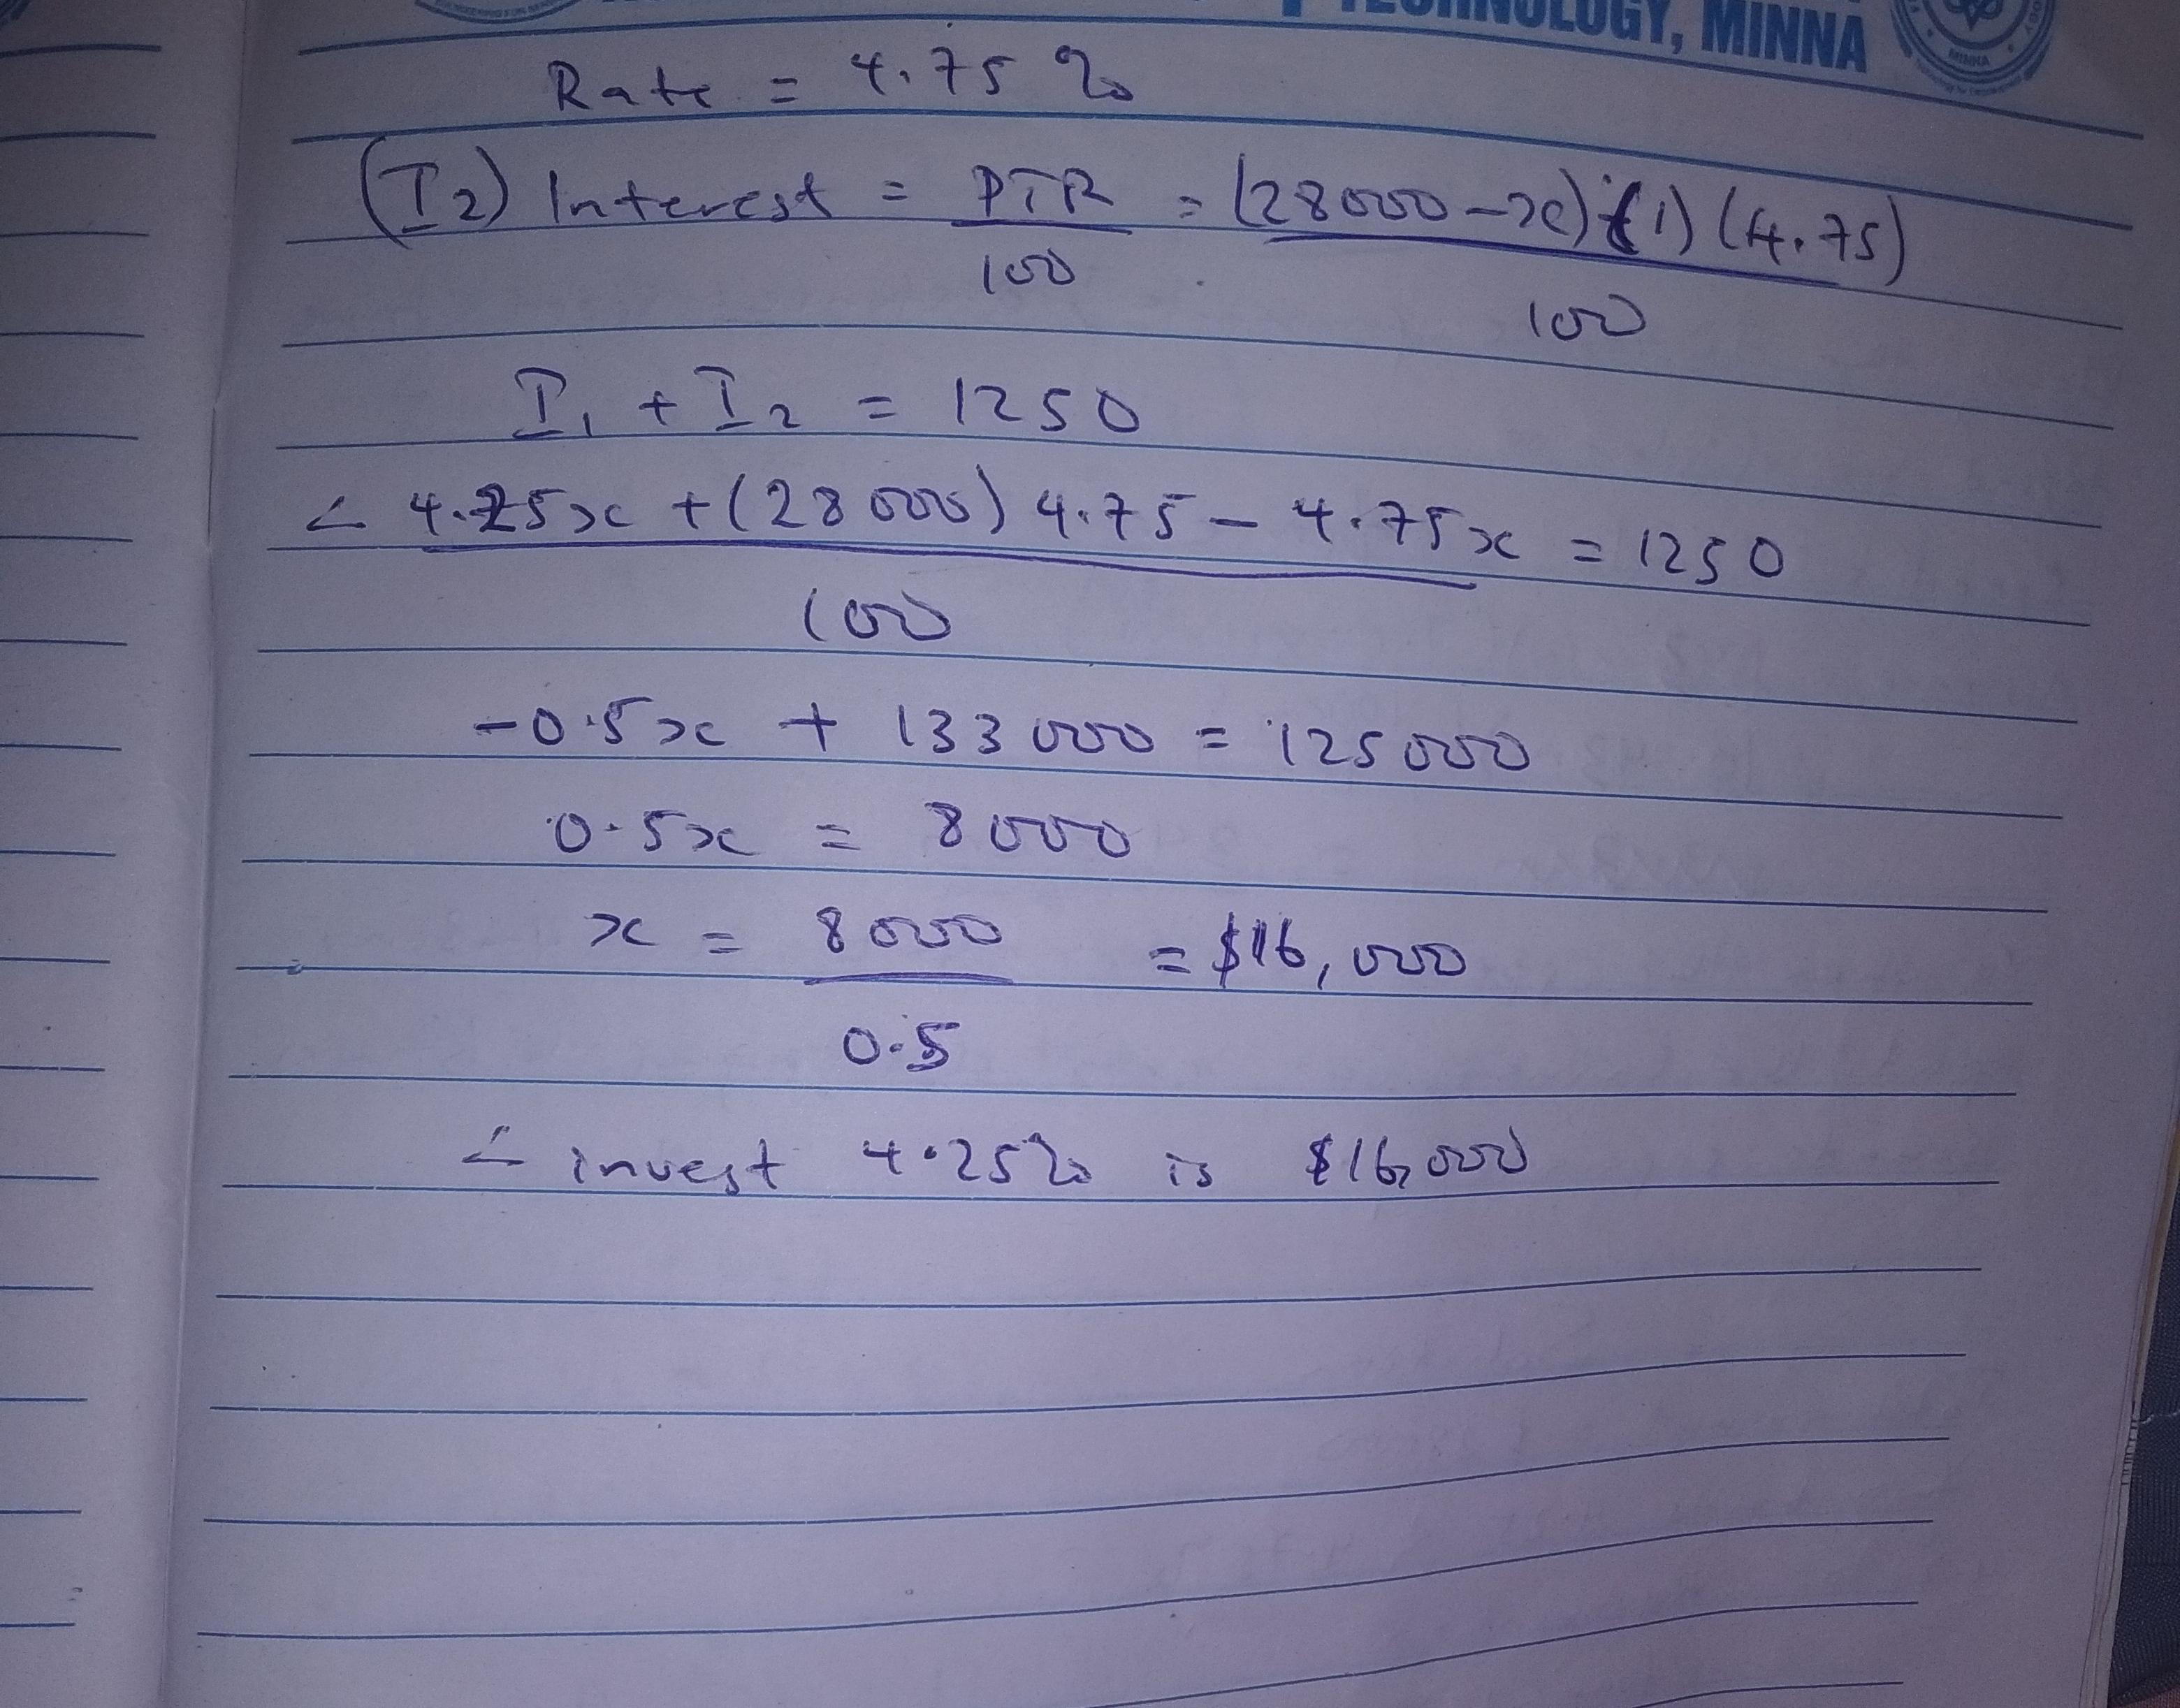 TECHNOLOGY, MINNA
MINNA
Rate = 4.75 %
(I2) Interest = PTR/100 = (28000-x)(1)(4.75)/100
I1 + I2 = 1250
∠ 4.25x + (28000) 4.75 - 4.75x / 100 = 1250
-0.5x + 133000 = 125000
0.5x = 8000
x = 8000/0.5 = $16,000
∴ invest 4.25% is $16,000